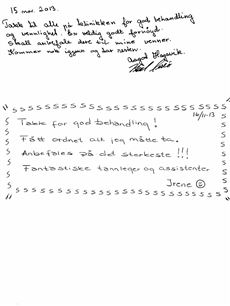 15 mai 2013.
Takk til alle på klinikken for god behandling
og vennlighet. Er veldig godt fornøyd.
Skal anbefale dere til mine venner.
Kommer nok igjen og tar resten.
14/11-13
Takk for god behandling!
Fått ordnet alt jeg måtte ta.
Anbefales på det sterkeste!!!
Fantastiske tannleger og assistenter.
Irene ☺